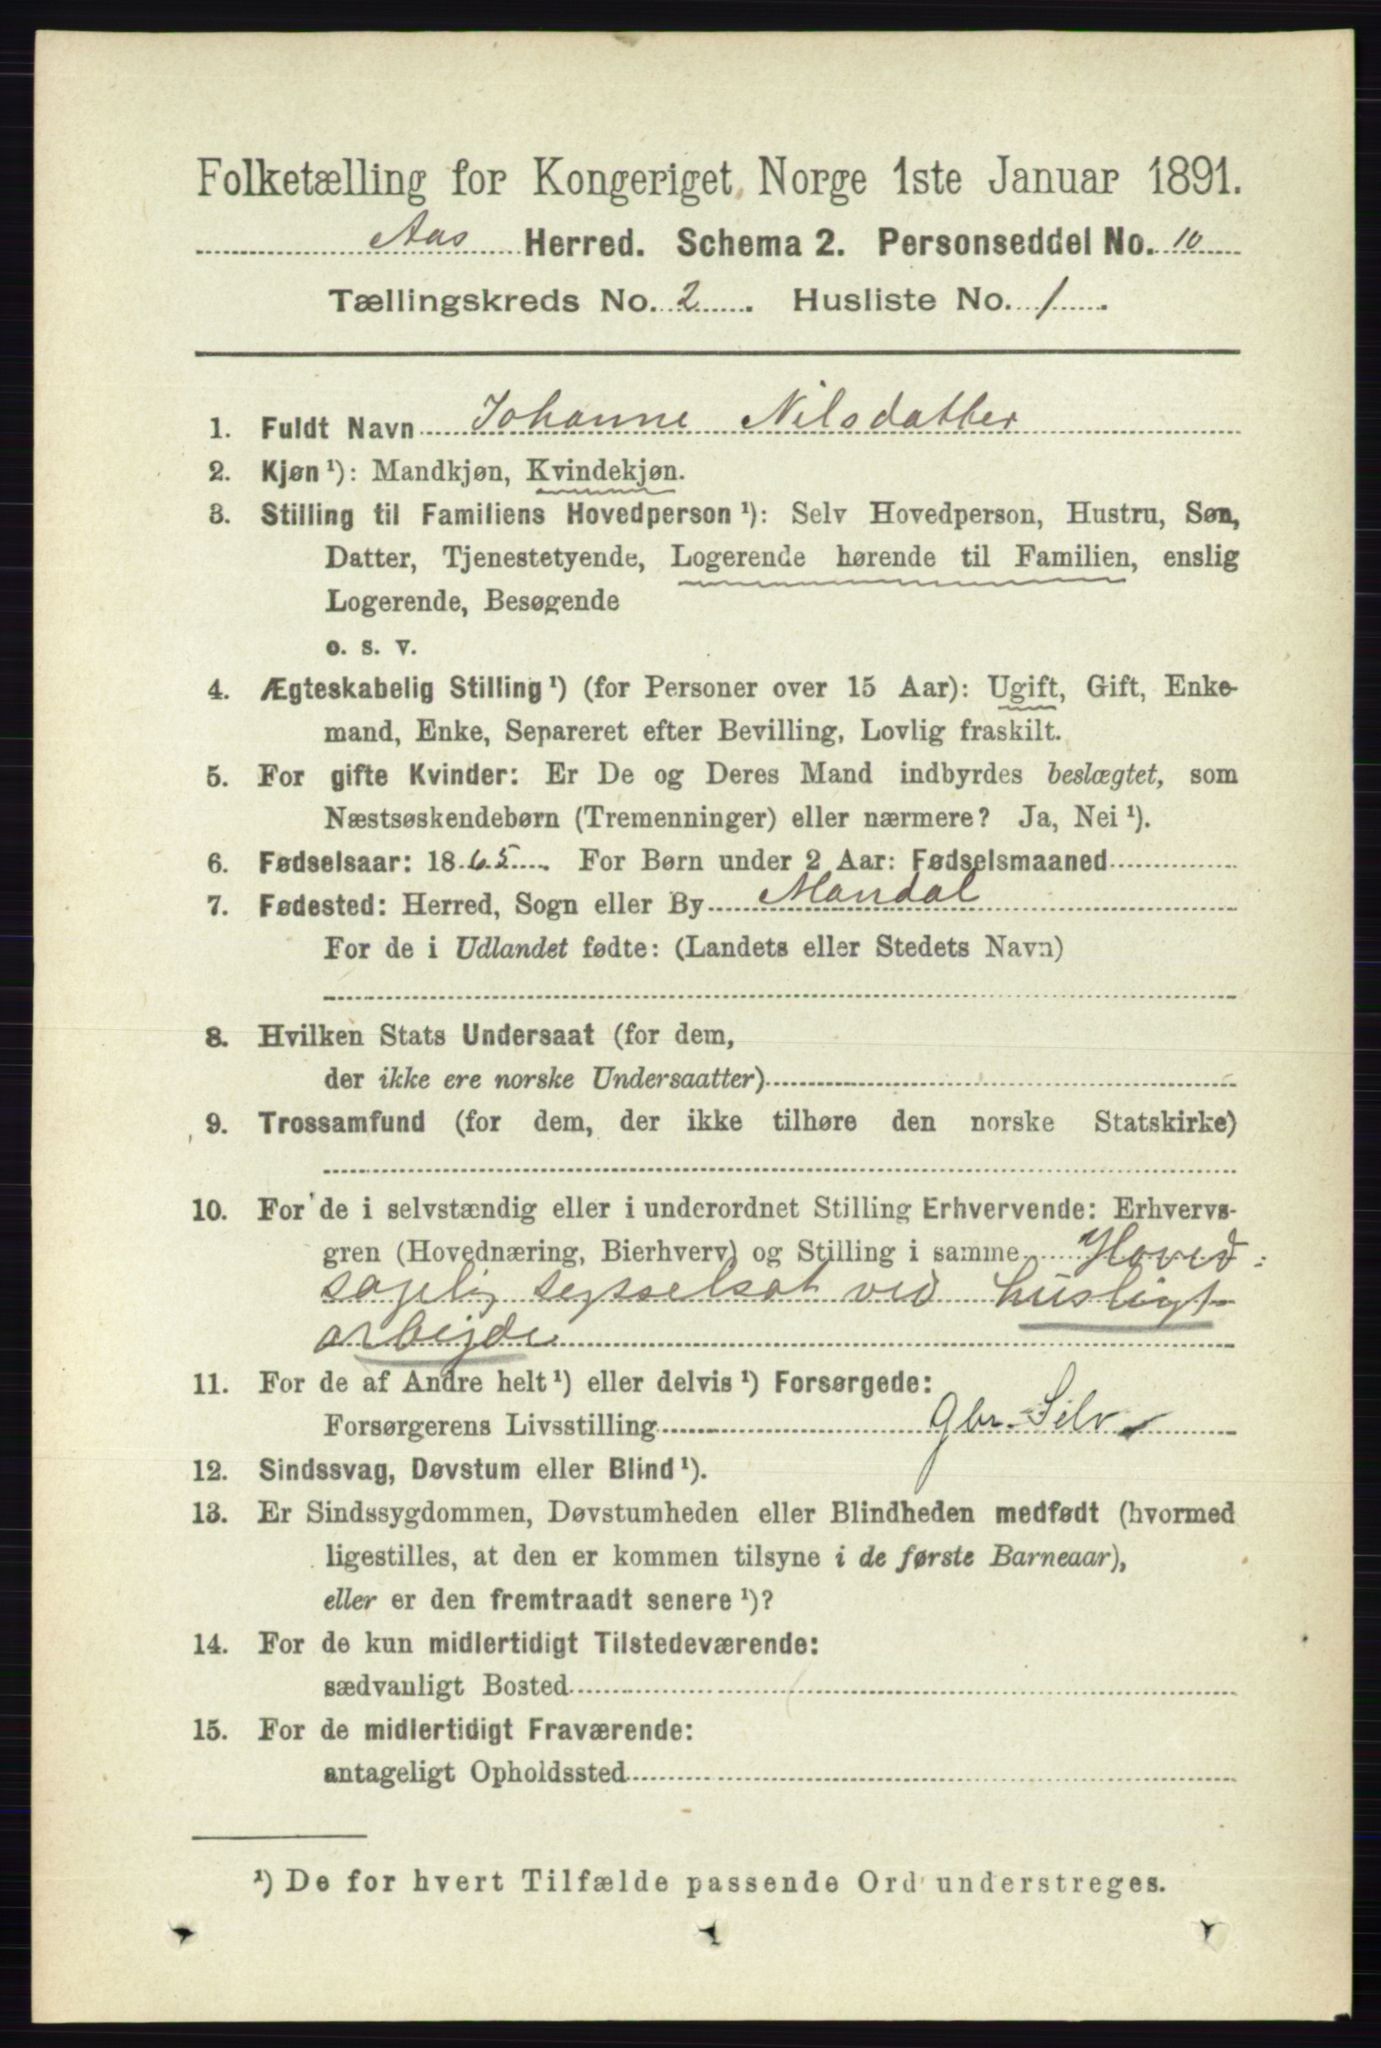 Folketælling for Kongeriget Norge 1ste Januar 1891.
Aas Herred. Schema 2. Personseddel No. 10
Tællingskreds No. 2. Husliste No. 1.
1. Fuldt Navn Johanne Nilsdatter
2. Kjøn ¹): Mandkjøn, Kvindekjøn.
3. Stilling til Familiens Hovedperson ¹): Selv Hovedperson, Hustru, Søn,
Datter, Tjenestetyende, Logerende hørende til Familien, enslig
Logerende, Besøgende
o. s. v.
4. Ægteskabelig Stilling ¹) (for Personer over 15 Aar): Ugift, Gift, Enke-
mand, Enke, Separeret efter Bevilling, Lovlig fraskilt.
5. For gifte Kvinder: Er De og Deres Mand indbyrdes beslægtet, som
Næstsøskendebørn (Tremenninger) eller nærmere? Ja, Nei ¹).
6. Fødselsaar: 1865. For Børn under 2 Aar: Fødselsmaaned
7. Fødested: Herred, Sogn eller By Mandal
For de i Udlandet fødte: (Landets eller Stedets Navn)
8. Hvilken Stats Undersaat (for dem,
der ikke ere norske Undersaatter)
9. Trossamfund (for dem, der ikke tilhøre den norske Statskirke)
10. For de i selvstændig eller i underordnet Stilling Erhvervende: Erhvervs-
gren (Hovednæring, Bierhverv) og Stilling i samme Hoved-
sagelig sysselsat ved husligt
arbejde
11. For de af Andre helt ¹) eller delvis ¹) Forsørgede:
Forsørgerens Livsstilling Gbr. Selv
12. Sindssvag, Døvstum eller Blind ¹).
13. Er Sindssygdommen, Døvstumheden eller Blindheden medfødt (hvormed
ligestilles, at den er kommen tilsyne i de første Barneaar),
eller er den fremtraadt senere ¹)?
14. For de kun midlertidigt Tilstedeværende:
sædvanligt Bosted
15. For de midlertidigt Fraværende:
antageligt Opholdssted
¹) De for hvert Tilfælde passende Ord understreges.